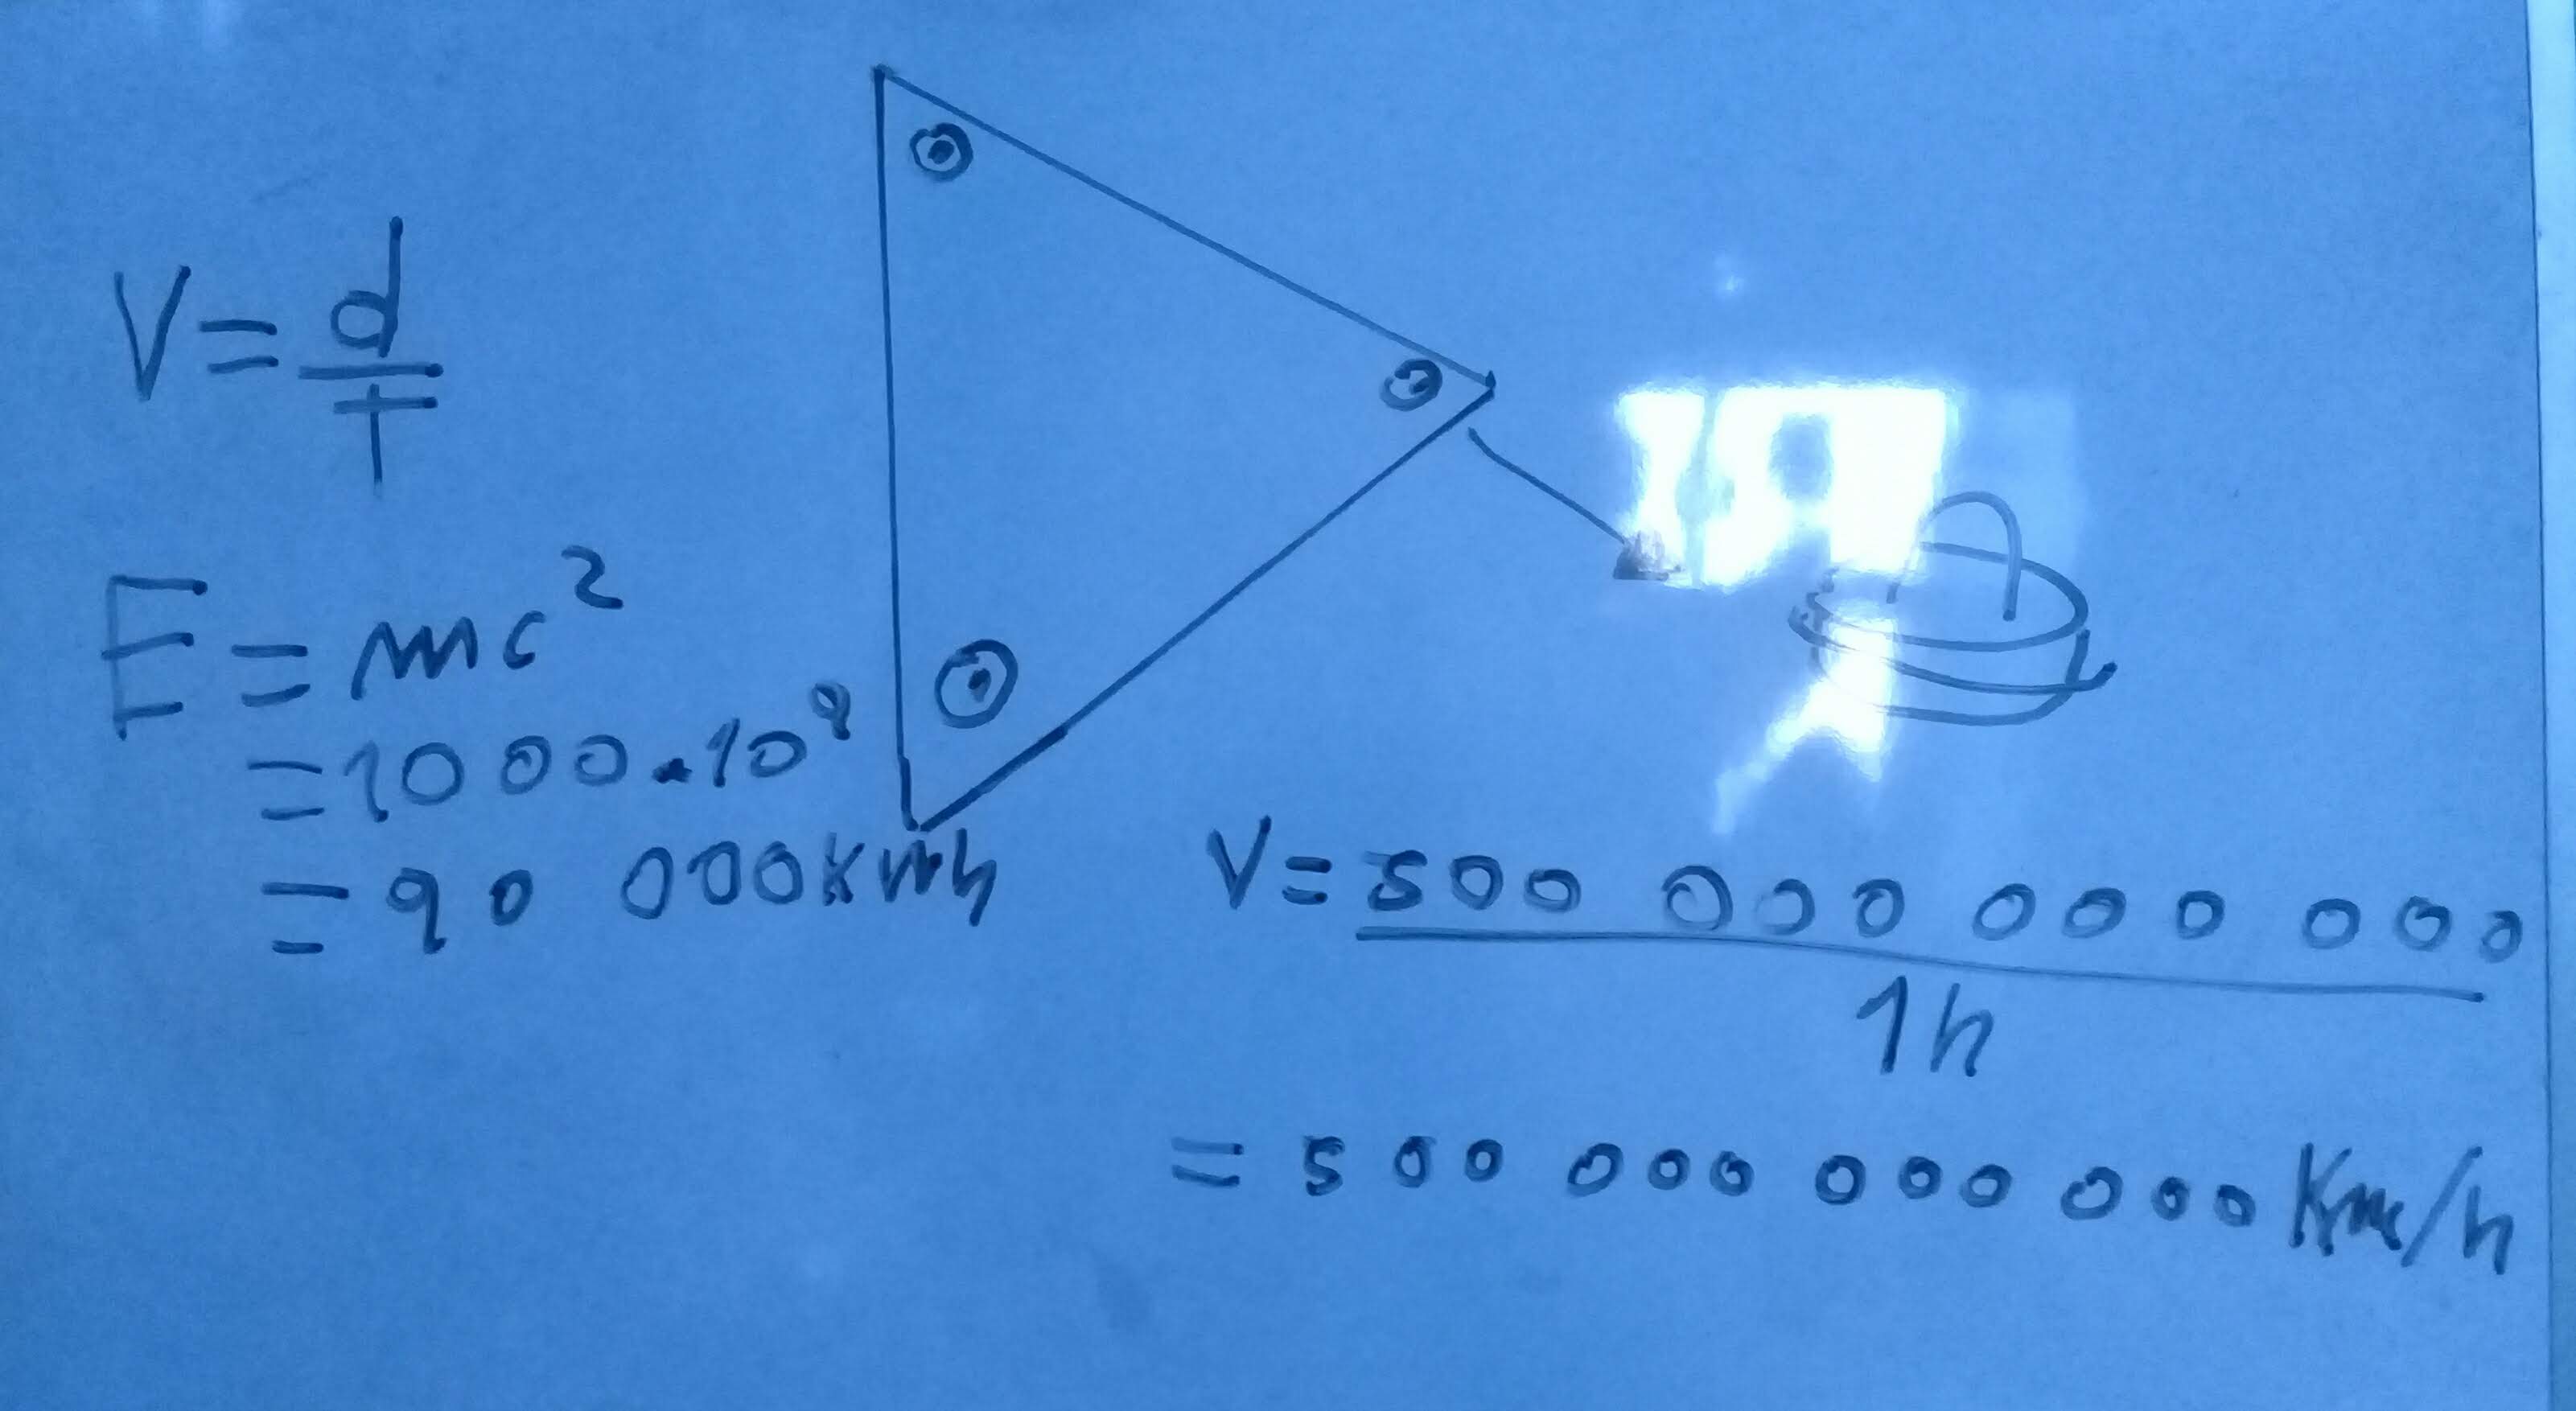 V = d/T
E = mc²
= 1000 . 10⁸
= 90 000 Kwh
V = 500 000 000 000 / 1h
= 500 000 000 000 Km/h